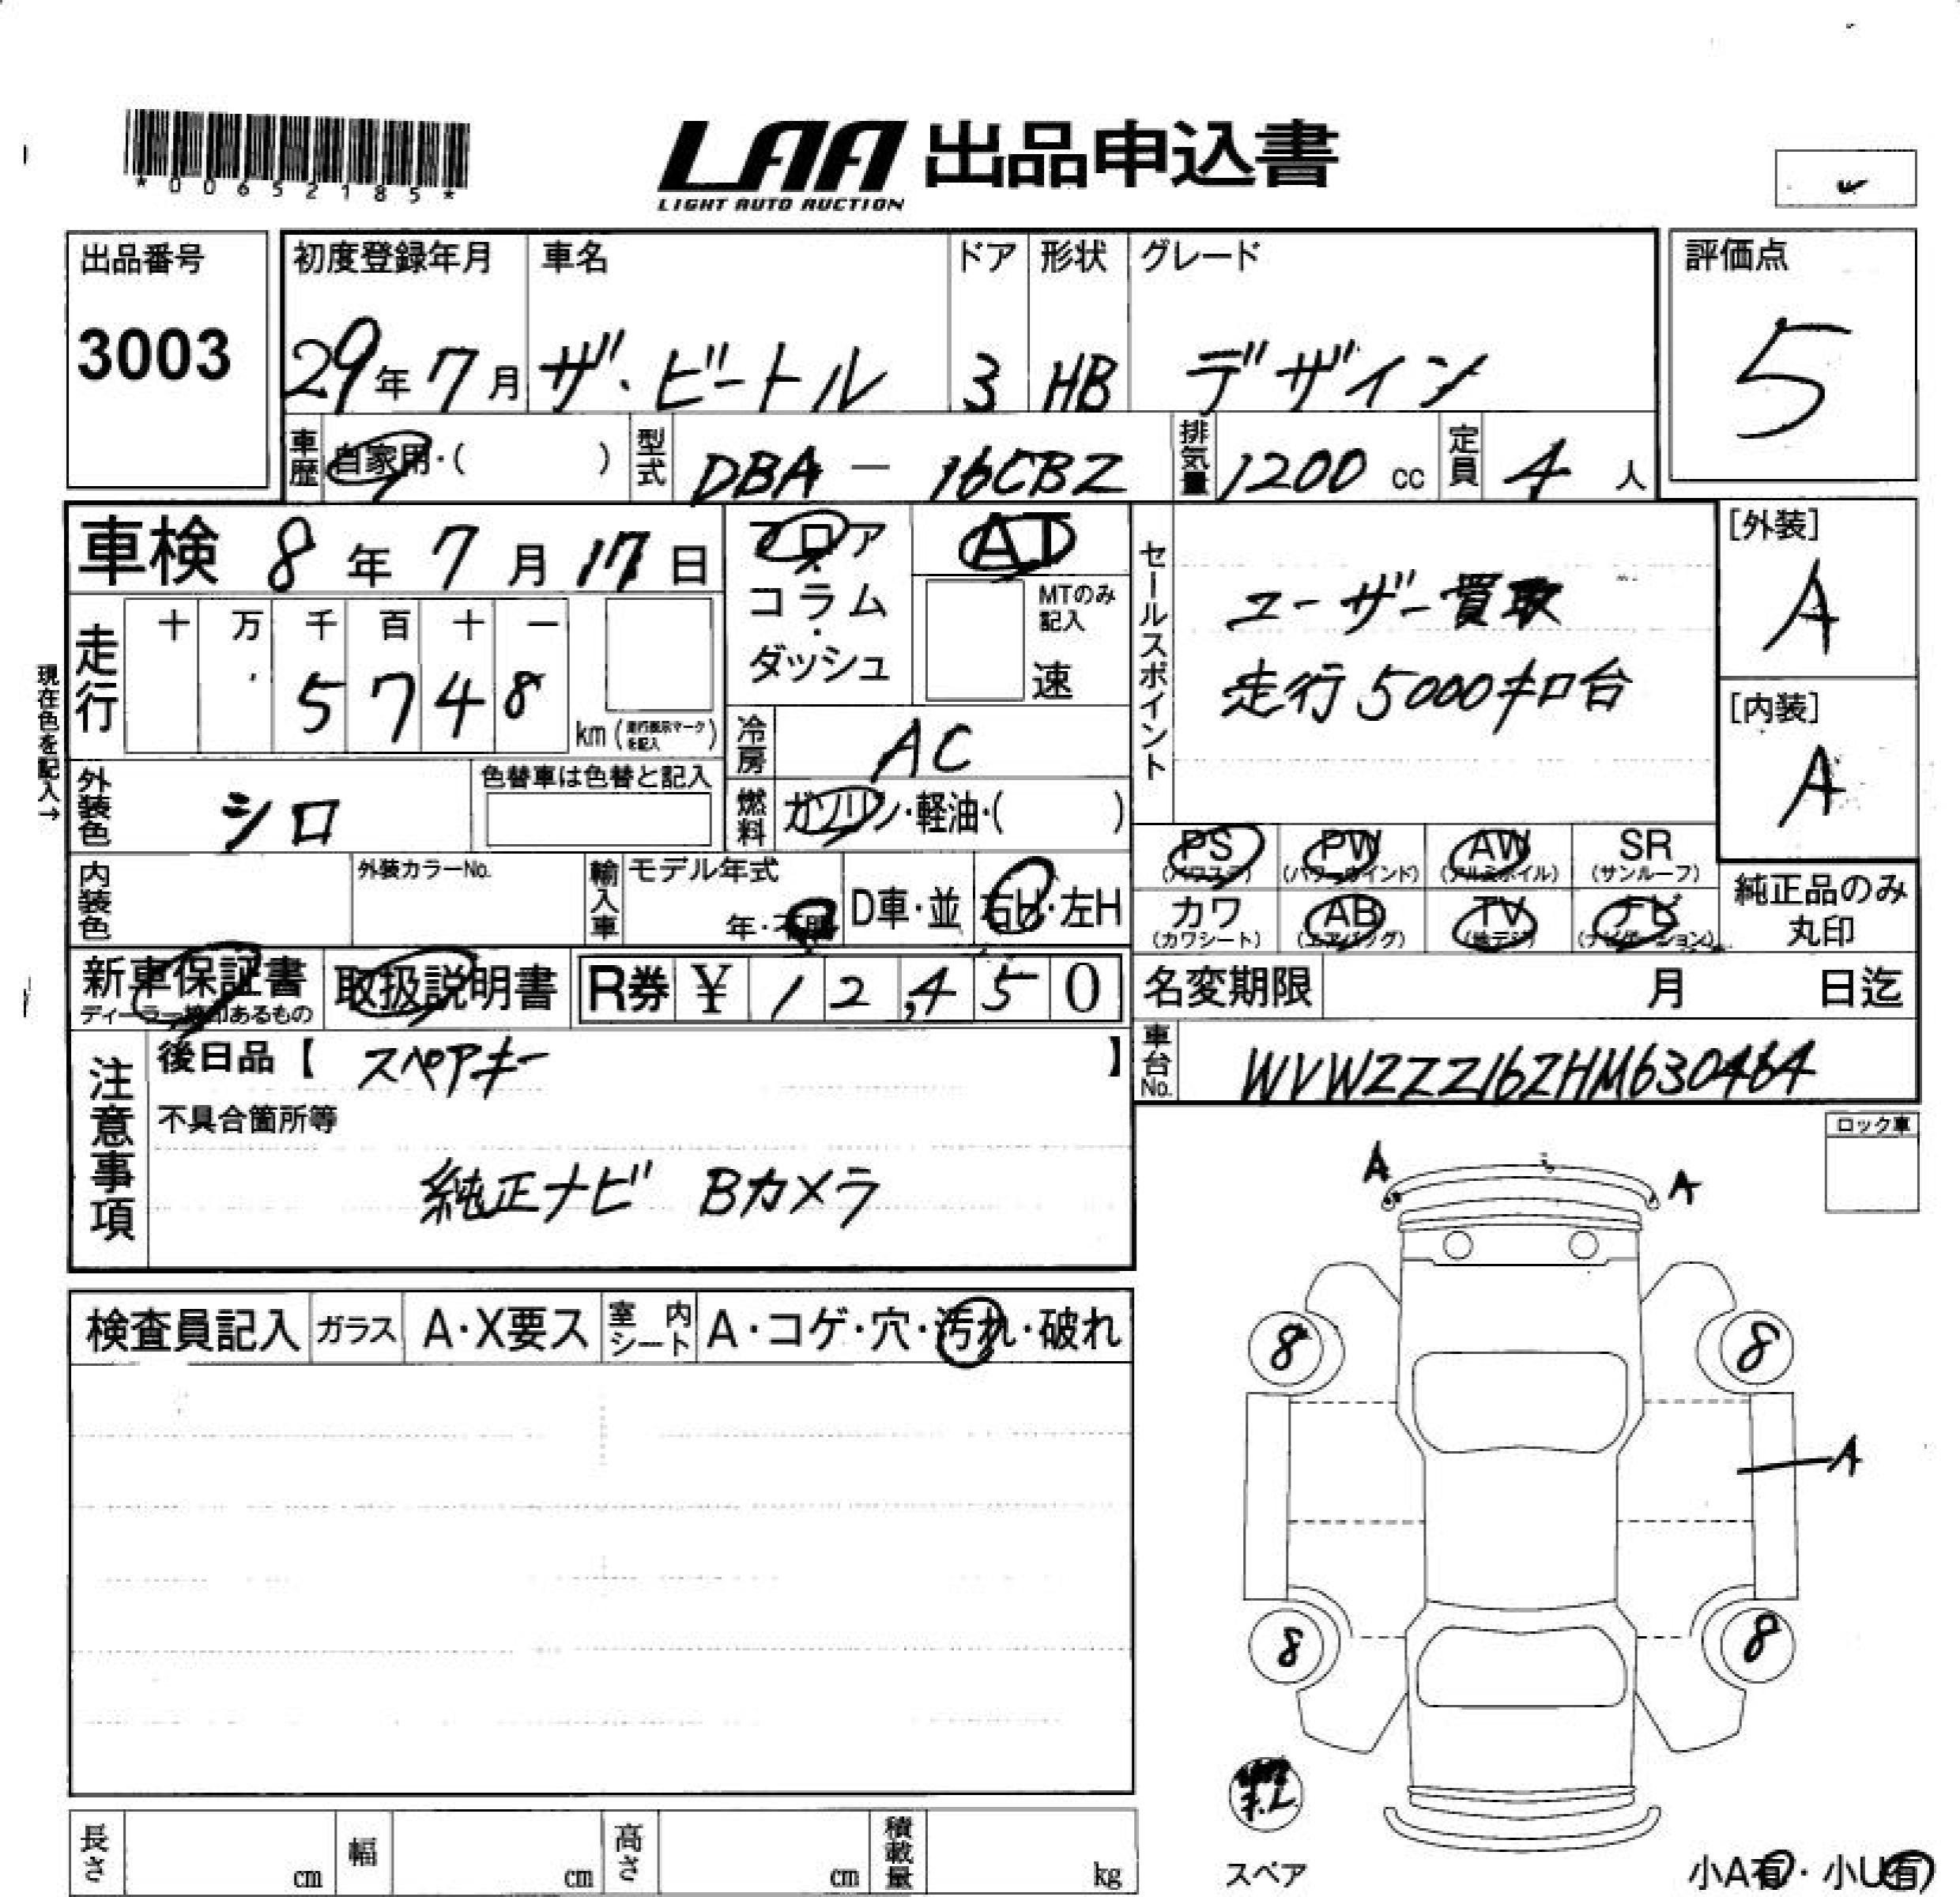 *00652185*
LAA 出品申込書
LIGHT AUTO AUCTION
出品番号
3003
初度登録年月 車名 ドア 形状 グレード
29年 7月 ザ・ビートル 3 HB デザイン
評価点
5
車歴 自家用・( ) 型式 DBA - 16CBZ 排気量 1200 cc 定員 4 人
車検 8年 7月 17日
フロア・コラム・ダッシュ
AT
MTのみ記入
速
セールスポイント
ユーザー買取
走行5000キロ台
[外装]
A
[内装]
A
現在色を記入→
走行 十 万 千 百 十 一
5 7 4 8 km(走行表示マークを記入)
冷房 AC
外装色 シロ 色替車は色替と記入
燃料 ガソリン・軽油・( )
PS PW AW SR
(パワステ) (パワーウインド) (アルミホイル) (サンルーフ)
カワ AB TV ナビ
(カワシート) (エアバッグ) (地デジ) (ナビゲーション)
純正品のみ
丸印
内装色 外装カラーNo. 輸入車 モデル年式 年・不明 D車・並 右H・左H
新車保証書 取扱説明書 R券 ¥ 12,450
ディーラー捺印あるもの
名変期限 月 日迄
車台No. WVWZZZ16ZHM630464
注意事項
後日品【 スペアキー 】
不具合箇所等
純正ナビ Bカメラ
ロック車
A A
検査員記入 ガラス A・X要ス 室内シート A・コゲ・穴・汚れ・破れ
8 8
A
8 8
スペア
小A有・小U有
長さ cm 幅 cm 高さ cm 積載量 kg